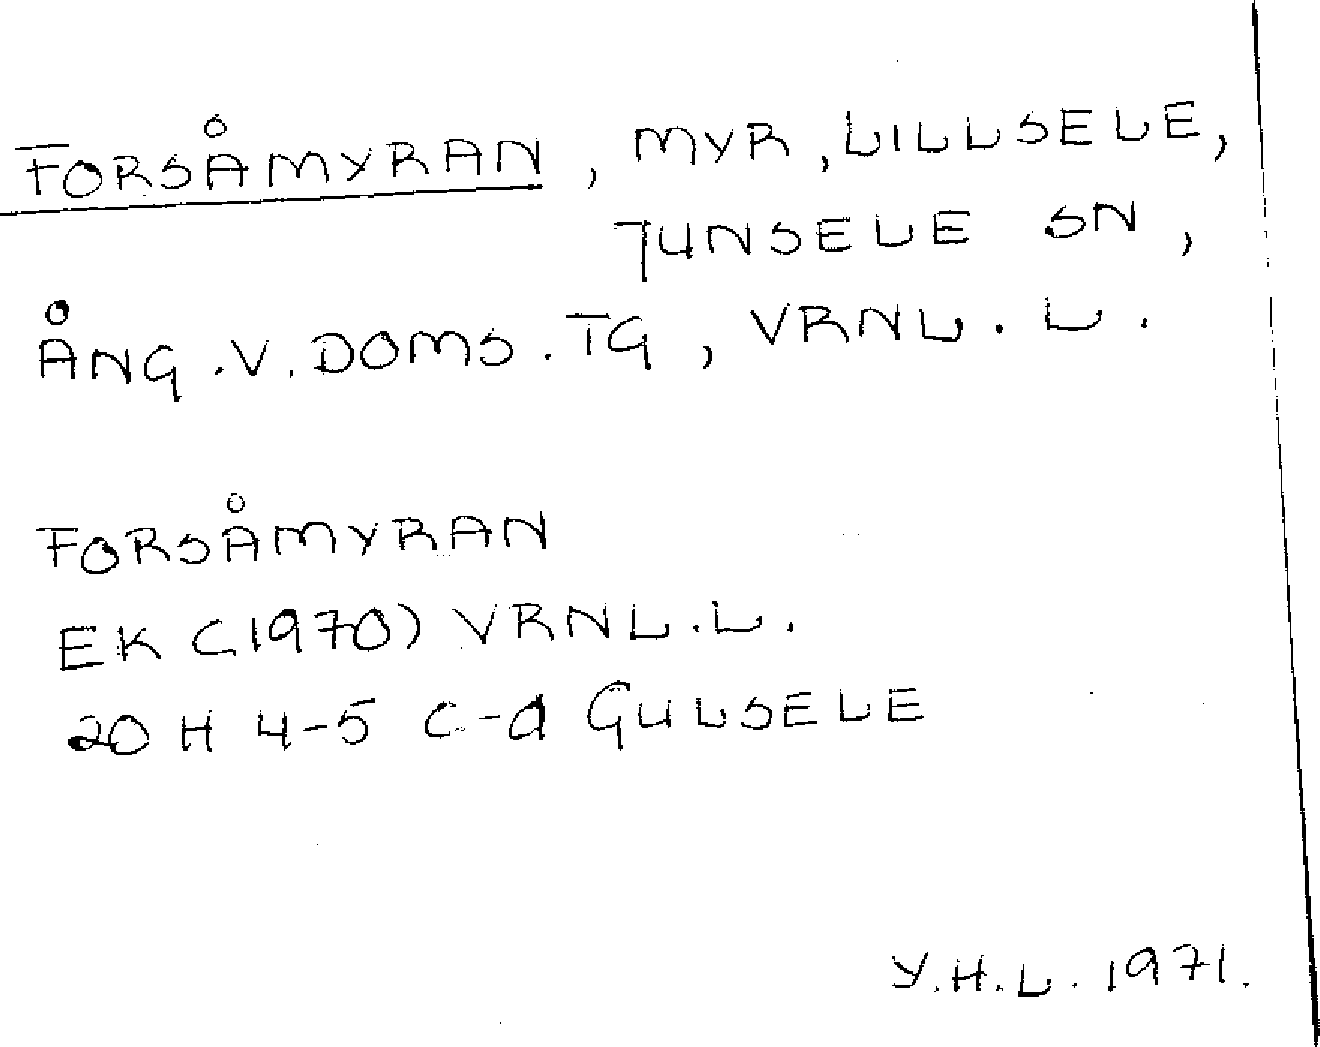 FORSÅMYRAN, MYR, LILLSELE,
JUNSELE SN,
ÅNG.V.DOMS.TG, VRNL.L.
FORSÅMYRAN
EK (1970) VRNL.L.
20 H 4-5 c-d GULSELE
Y.H.L. 1971.